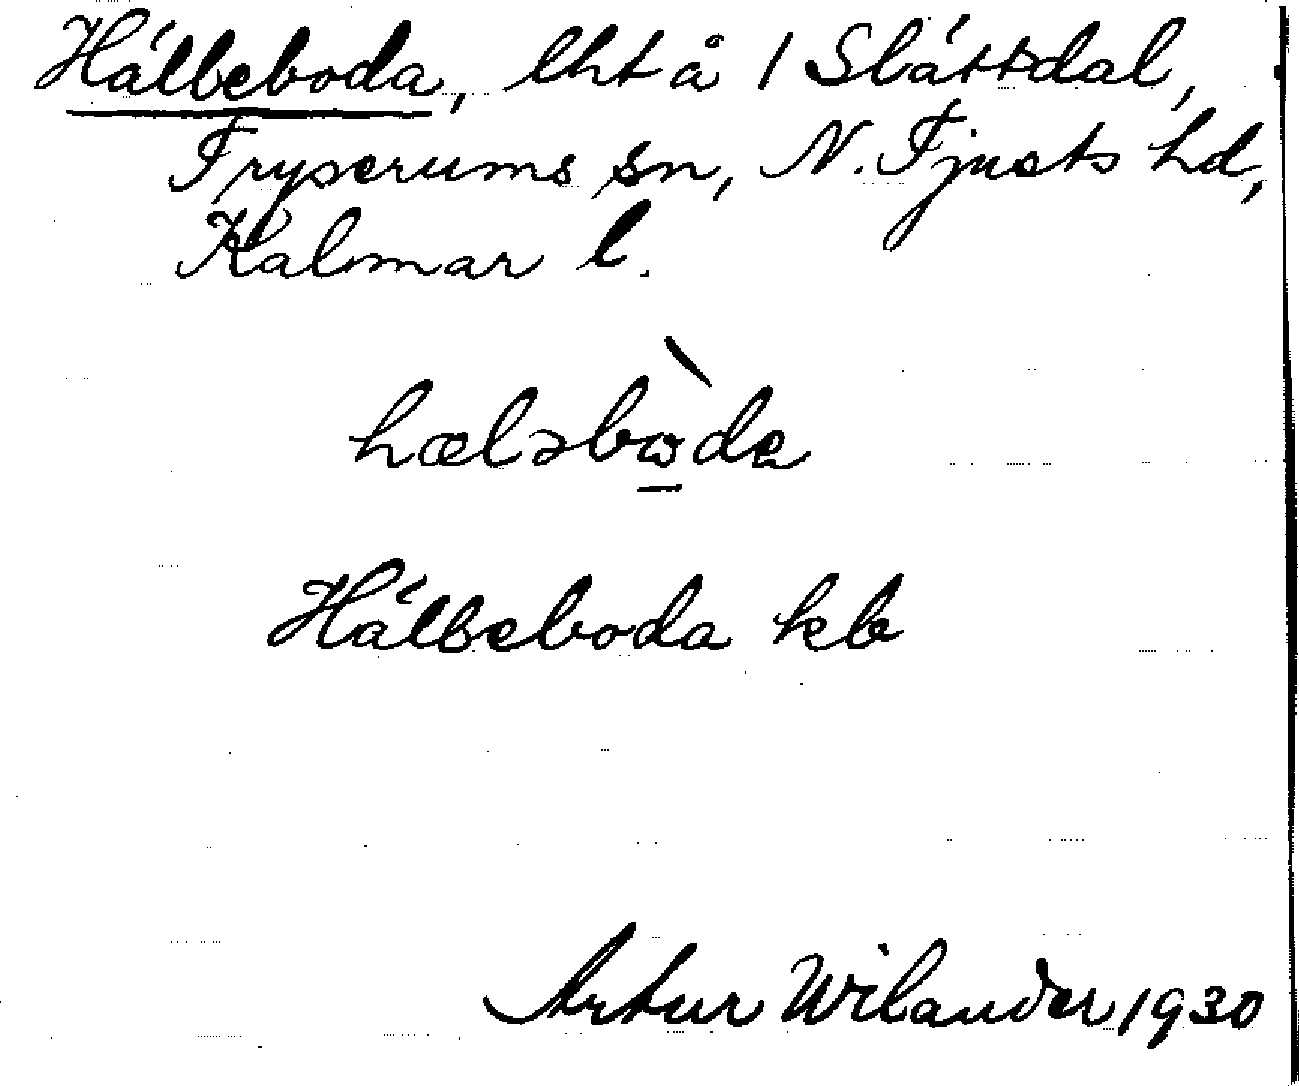 Hälleboda, lht å 1 Slättdal,
Tryserums sn, N. Tjusts hd,
Kalmar l.
hæləbòda
Hälleboda kb
Artur Wilander 1930